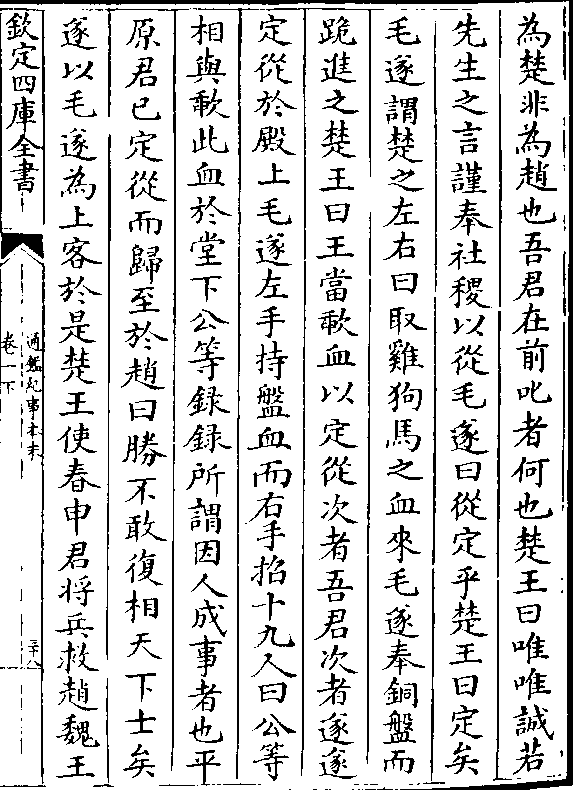 為楚非為趙也吾君在前叱者何也楚王曰唯唯誠若
先生之言謹奉社稷以從毛遂曰從定乎楚王曰定矣
毛遂謂楚之左右曰取雞狗馬之血來毛遂奉銅盤而
跪進之楚王曰王當歃血以定從次者吾君次者遂遂
定從於殿上毛遂左手持盤血而右手招十九人曰公等
相與歃此血於堂下公等録録所謂因人成事者也平
原君已定從而歸至於趙曰勝不敢復相天下士矣
遂以毛遂為上客於是楚王使春申君将兵救趙魏王
欽定四庫全書
通鑑紀事本末
卷一下
三十八